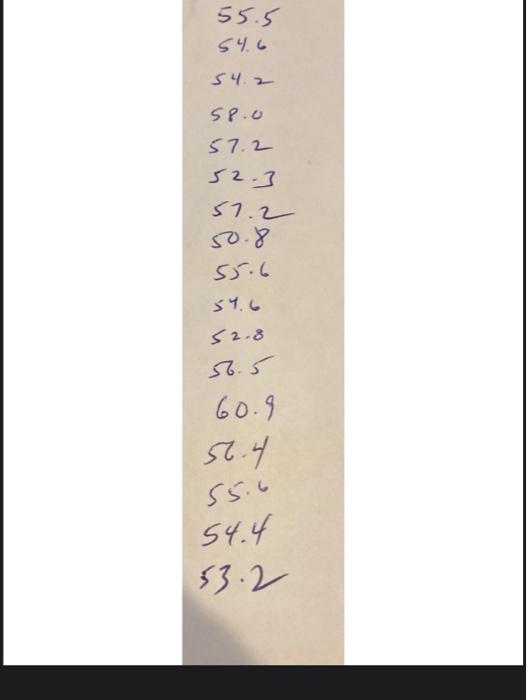 55.5
54.6
54.2
58.0
57.2
52.3
57.2
50.8
55.6
54.6
52.8
56.5
60.9
56.4
55.6
54.4
53.2